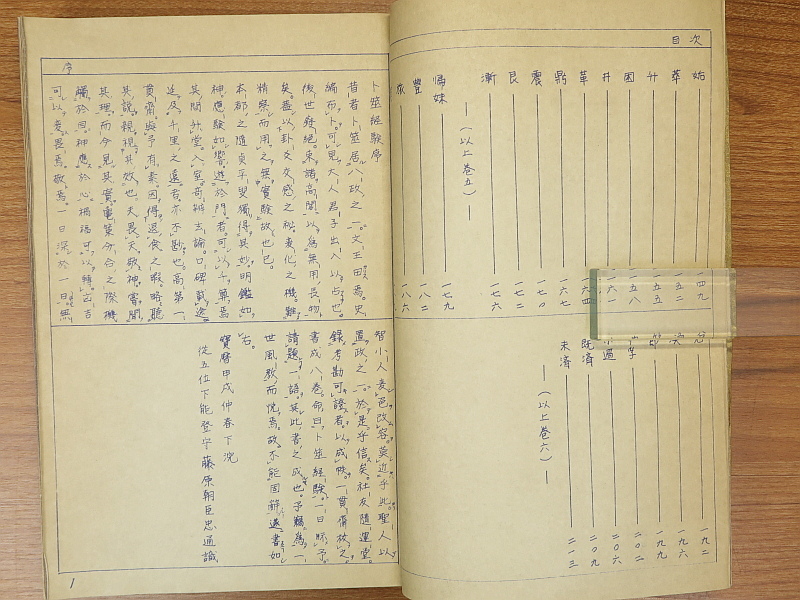 目次
姤 一四九
萃 一五二
升 一五五
困 一五八
井 一六一
革 一六四
鼎 一六七
震 一七〇
艮 一七二
漸 一七六
（以上巻五）
歸妹 一七九
豐 一八二
旅 一八六
兌 一九二
渙 一九六
節 一九九
中孚 二〇二
小過 二〇六
既濟 二〇九
未濟 二一三
（以上巻六）
序
卜筮経験序
昔者卜筮居八政之一。文王田焉。史
編布卜。可見大人君子出入以占也。
後世録絶。束諸高閣以為無用長物
矣。盖以卦爻交感之秘。変化之機。難
精察而用之。無實験故也已。
本郡之隨貞平叟獨得其妙。明鑑如
神。應験如響。遊於門者。可以千乗焉。
其間升堂入室。論。口碑載道
延及千里之遠者。亦不尠也。高第一
貫齋與予有素。因得退食之暇。時聽
其説。親視其效也。夫畏天敬神。嘗聞
其理。而今見其實。策分合之際。機
觸於同。神應於心。禍福可以轉。吉
可以変。畏焉敬焉。一日深於一日。無
智小人変色改容。莫近乎此。聖人以
置政之一。於是乎信矣。社友隨運堂。
録考勘可證者。以成帙。一貫齋校之。
書成八巻。命曰卜筮経験。一日眎予
請題一語。其此書之成也。予竊為一
世風教而悦焉。故不能固辞。遂書如
右。
寶暦甲戌仲春下浣
從五位下能登守藤原朝臣忠通識
1